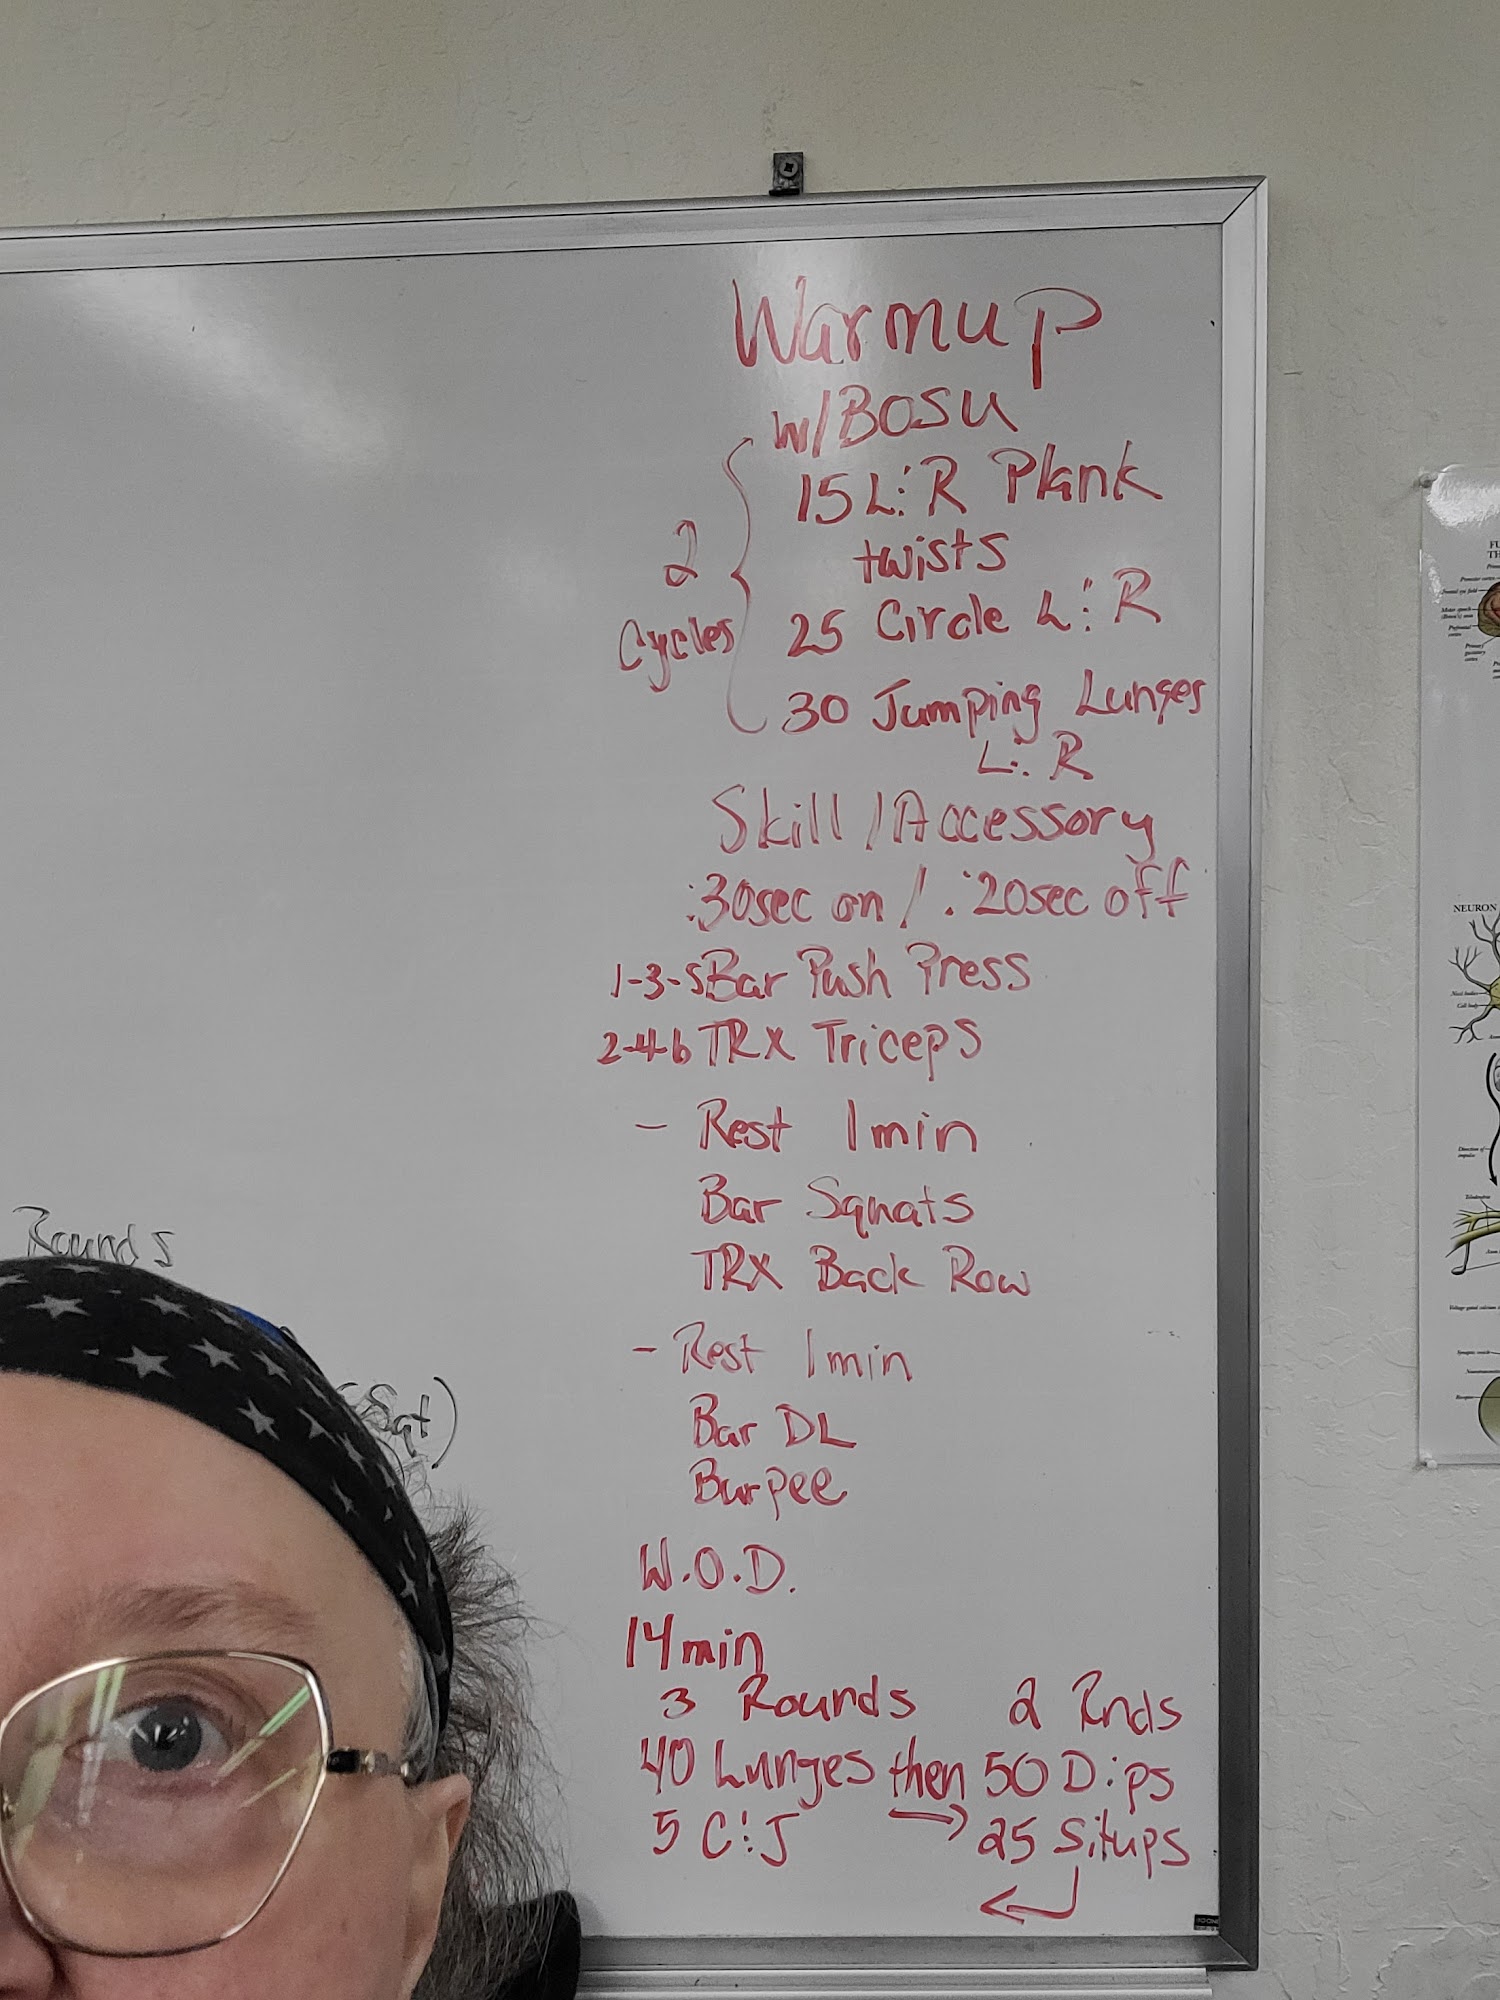 Warmup
w/BOSU
15 L:R Plank
twists
25 Circle L:R
30 Jumping Lunges
L:R
2
Cycles
Skill/Accessory
:30sec on / :20sec off
1-3-5 Bar Push Press
2-4-6 TRX Triceps
- Rest 1min
Bar Squats
TRX Back Row
- Rest 1min
Bar DL
Burpee
W.O.D.
14min
3 Rounds
40 Lunges then
5 C:J
2 Rnds
50 Dips
25 Situps
Rounds
NEURON